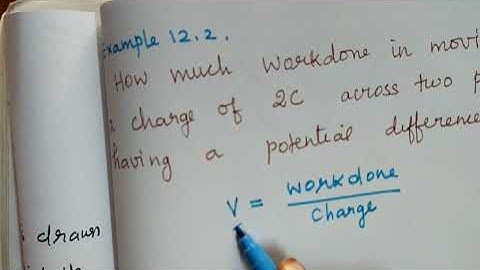 Example 12.2.
How much workdone in movi
charge of 2C across two p
having a potential difference
V = workdone
charge
drawn